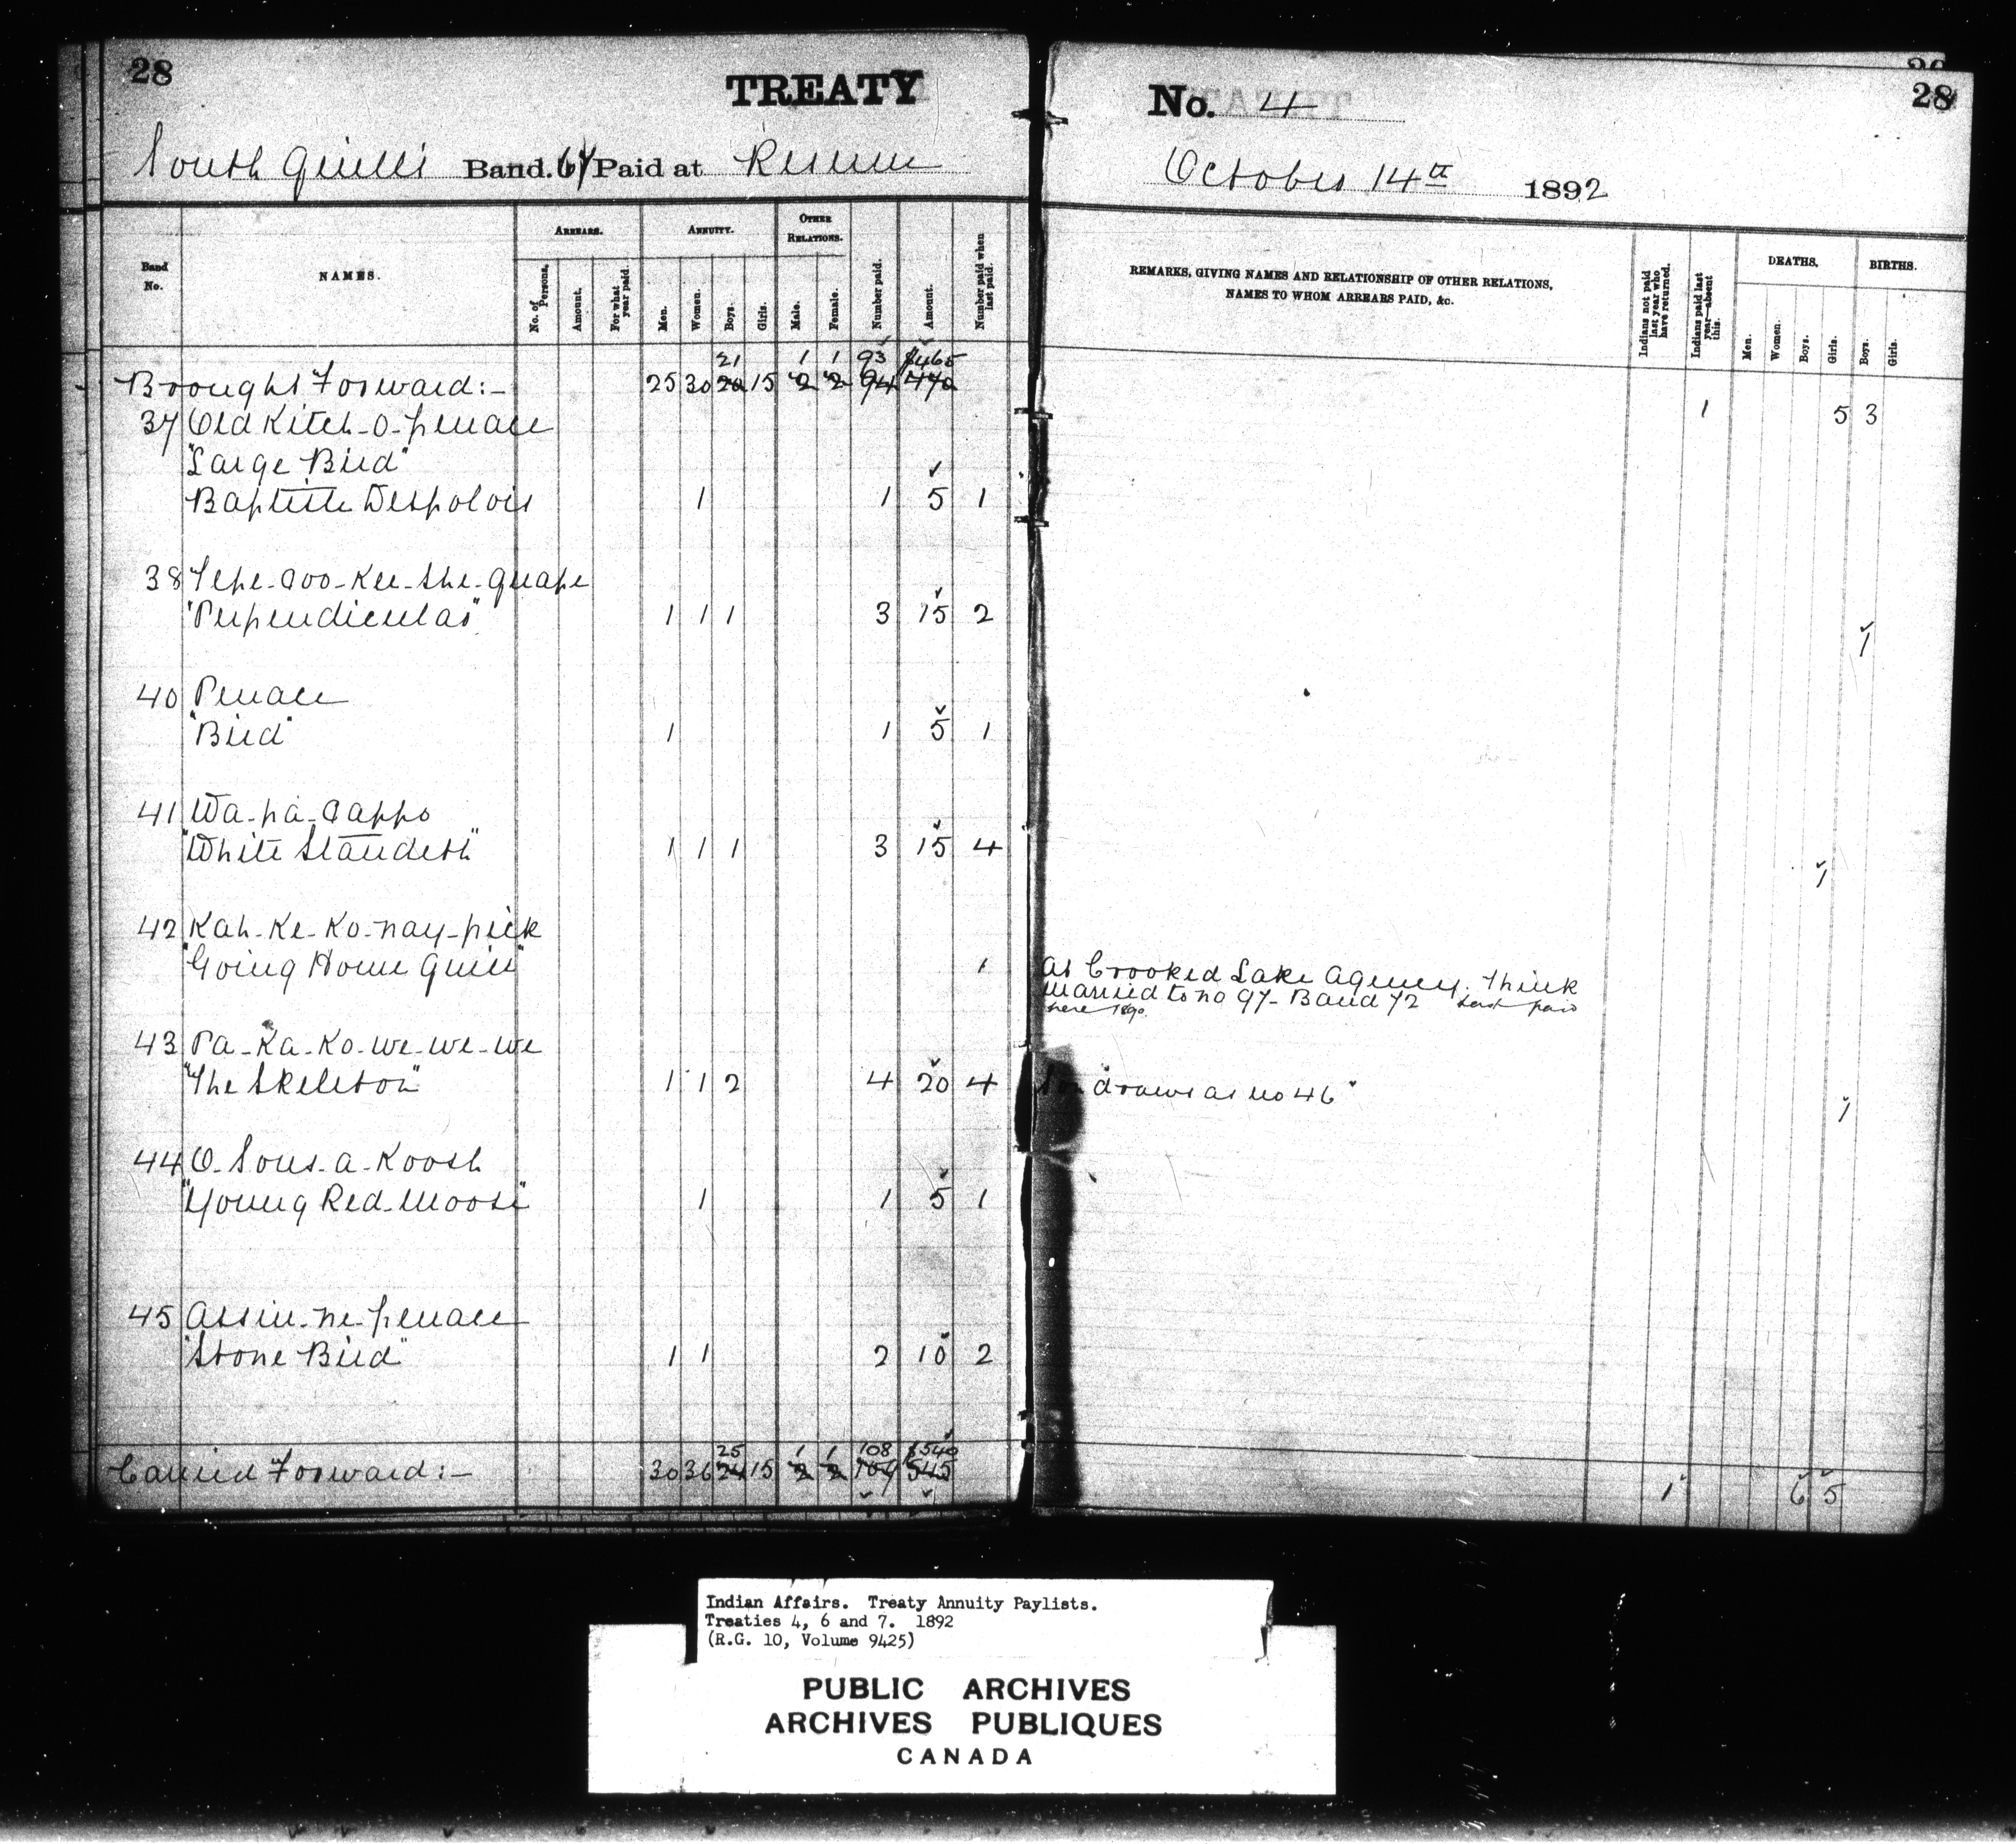 28
TREATY
No. 4
28
South Quill's Band. 67 Paid at Reserve
October 14th 1892
Band No.
NAMES.
ARREARS.
No. of Persons.
Amount.
For what year paid.
ANNUITY.
Men.
Women.
Boys.
Girls.
OTHER RELATIONS.
Male.
Female.
Number paid.
Amount.
Number paid when last paid.
REMARKS, GIVING NAMES AND RELATIONSHIP OF OTHER RELATIONS,
NAMES TO WHOM ARREARS PAID, &c.
Indians not paid last year who have returned.
Indians paid last year—absent this.
DEATHS.
Men.
Women.
Boys.
Girls.
BIRTHS.
Boys.
Girls.
21 1 1 93 $465
Brought Forward:- 25 30 20 15 2 2 94 470
1 5 3
37 Old Kitch-o-penace
"Large Bird"
Baptiste Despolois 1 1 5 1
38 Tepe-coo-kee-she-quape
"Perpendicular" 1 1 1 3 15 2
1
40 Penace
"Bird" 1 1 5 1
41 Wa-pa-cappo
"White Standeth" 1 1 1 3 15 4
1
42 Kah-ke-ko-nay-pick
"Going Home Quill" 1 at Crooked Lake Agency. Think
married to no 97- Band 72 Last paid
here 1890.
43 Pa-ka-ko-we-we-we
"The Skeleton" 1 1 2 4 20 4 draws as no 46"
1
44 O-Sous-a-Koosh
"Young Red-Moose" 1 1 5 1
45 Assin-ne-penace
"Stone Bird" 1 1 2 10 2
25 1 1 108 $540
Carried Forward:- 30 36 24 15 2 2 109 545
1 6 5
Indian Affairs. Treaty Annuity Paylists.
Treaties 4, 6 and 7. 1892
(R.G. 10, Volume 9425)
PUBLIC ARCHIVES
ARCHIVES PUBLIQUES
CANADA